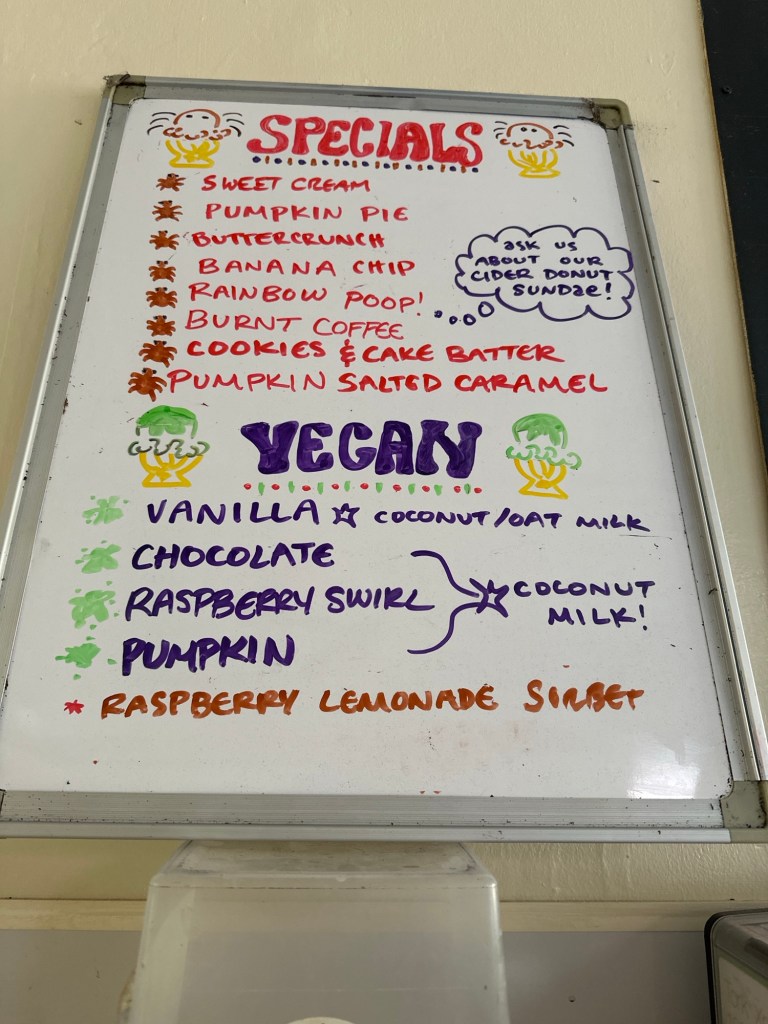 SPECIALS
SWEET CREAM
PUMPKIN PIE
BUTTERCRUNCH
BANANA CHIP
RAINBOW POOP!
BURNT COFFEE
COOKIES & CAKE BATTER
PUMPKIN SALTED CARAMEL
ASK US
ABOUT OUR
CIDER DONUT
SUNDAE!
VEGAN
VANILLA ☆ COCONUT/OAT MILK
CHOCOLATE
RASPBERRY SWIRL
PUMPKIN
☆ COCONUT
MILK!
* RASPBERRY LEMONADE SORBET